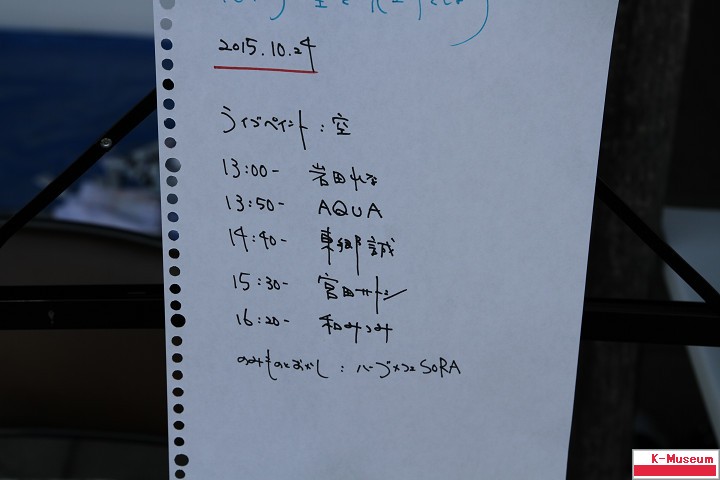 2015.10.24
ライブペイント:空
13:00- 岩田れな
13:50- AQUA
14:40- 東郷誠
15:30- 宮田サトシ
16:20- 和みつみ
のみものとおかし:ハーブカフェSORA
K-Museum